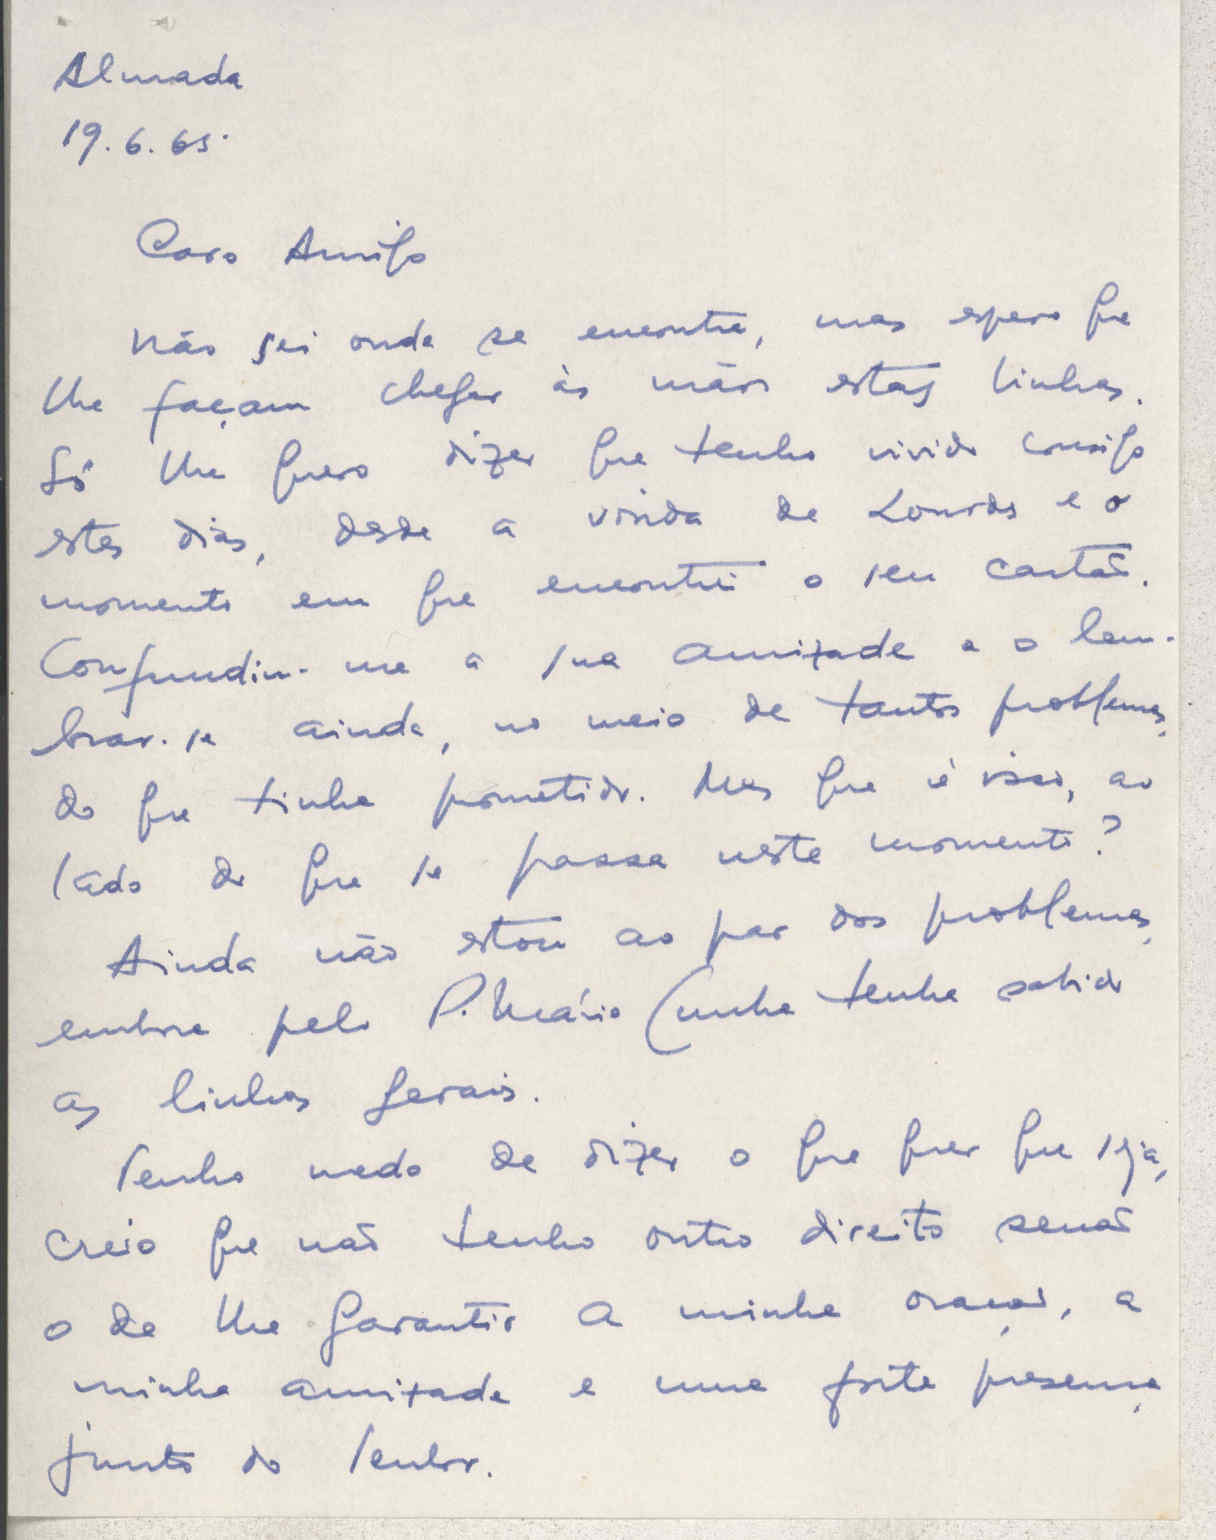 Almada
19.6.65.
Caro Amigo
Não sei onde se encontra, mas espero que
lhe façam chegar às mãos estas linhas.
Só lhe quero dizer que tenho vivido consigo
estes dias, desde a vinda de Lourdes e o
momento em que encontrei o seu cartão.
Confundiu-me a sua amizade e o lem-
brar-se ainda, no meio de tantos problemas,
do que tinha prometido. Mas que é isso, ao
lado do que se passa neste momento?
Ainda não estou ao par dos problemas,
embora pelo P. Mário Cunha tenha sabido
as linhas gerais.
Tenho medo de dizer o que quer que seja,
creio que não tenho outro direito senão
o de lhe garantir a minha oração, a
minha amizade e uma forte presença
junto do Senhor.